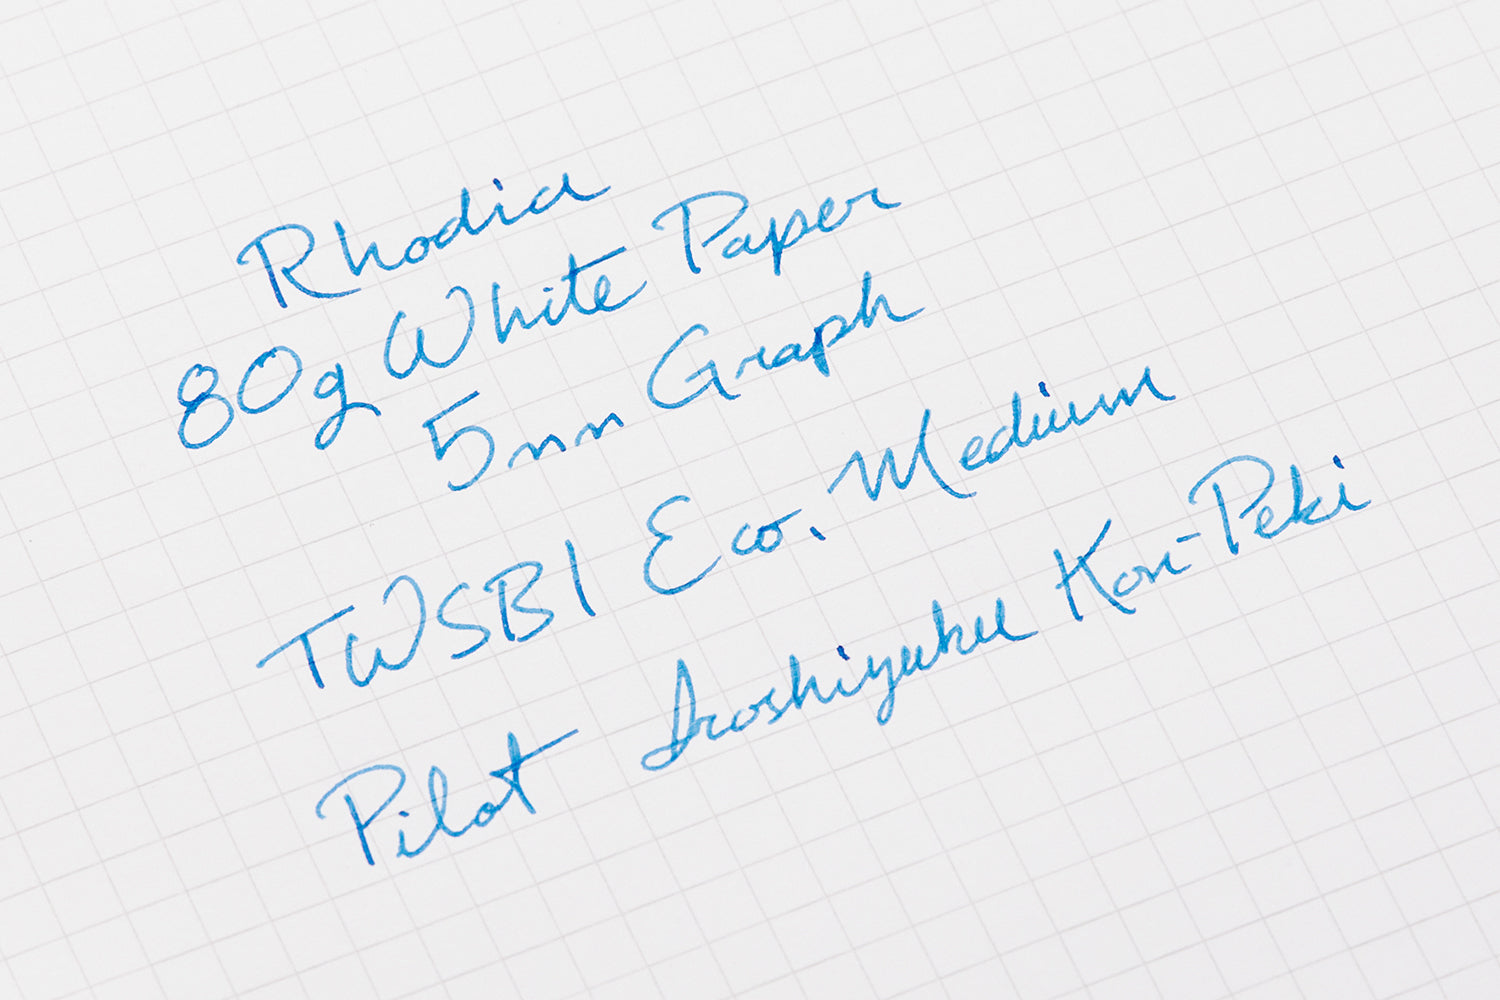 Rhodia
80g White Paper
5mm Graph
TWSBI Eco. Medium
Pilot Iroshizuku Kon-Peki